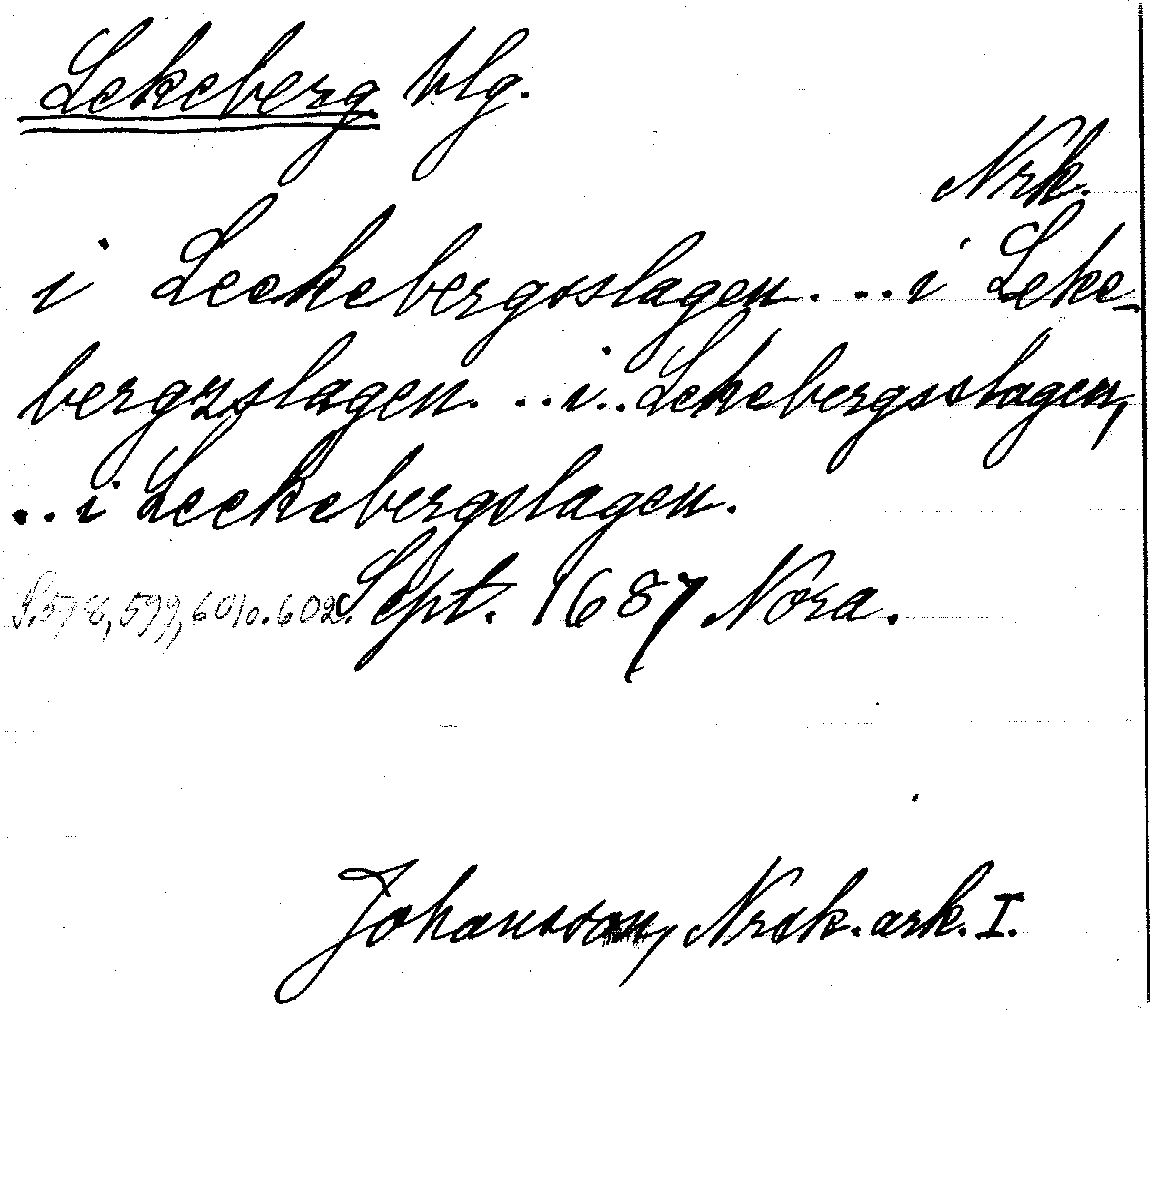 Lekeberg blg.
Nrk.
i Leekebergsslagen. ... i Leke-
bergzslagen. ... i.. Lekebergsslagen,
.. i Leekebergslagen.
S. 578, 599, 601 o. 602. Sept. 1687 Nora.
Johansson, Nrsk. ark. I.